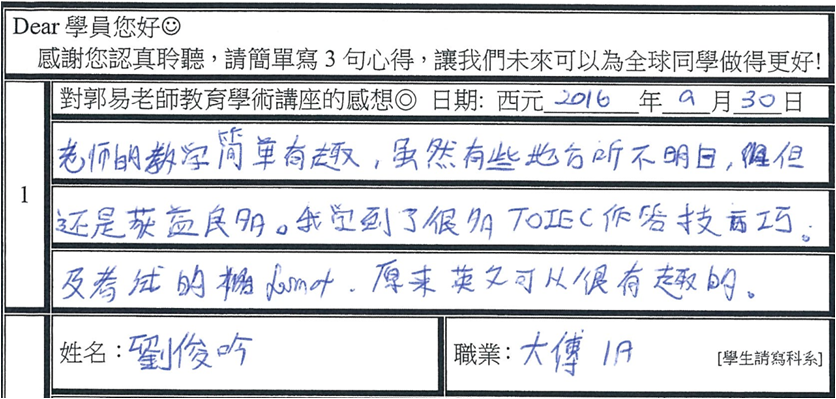 Dear 學員您好☺
感謝您認真聆聽，請簡單寫 3 句心得，讓我們未來可以為全球同學做得更好!
對郭易老師教育學術講座的感想◎ 日期: 西元 2016 年 9 月 30 日
1
老师的教学简单有趣，虽然有些地方所不明白，但
还是获益良多。我学到了很多 TOIEC 作答技巧。
及考试的 format. 原来英文可以很有趣的。
姓名：劉俊吟
職業：大傳 1A [學生請寫科系]